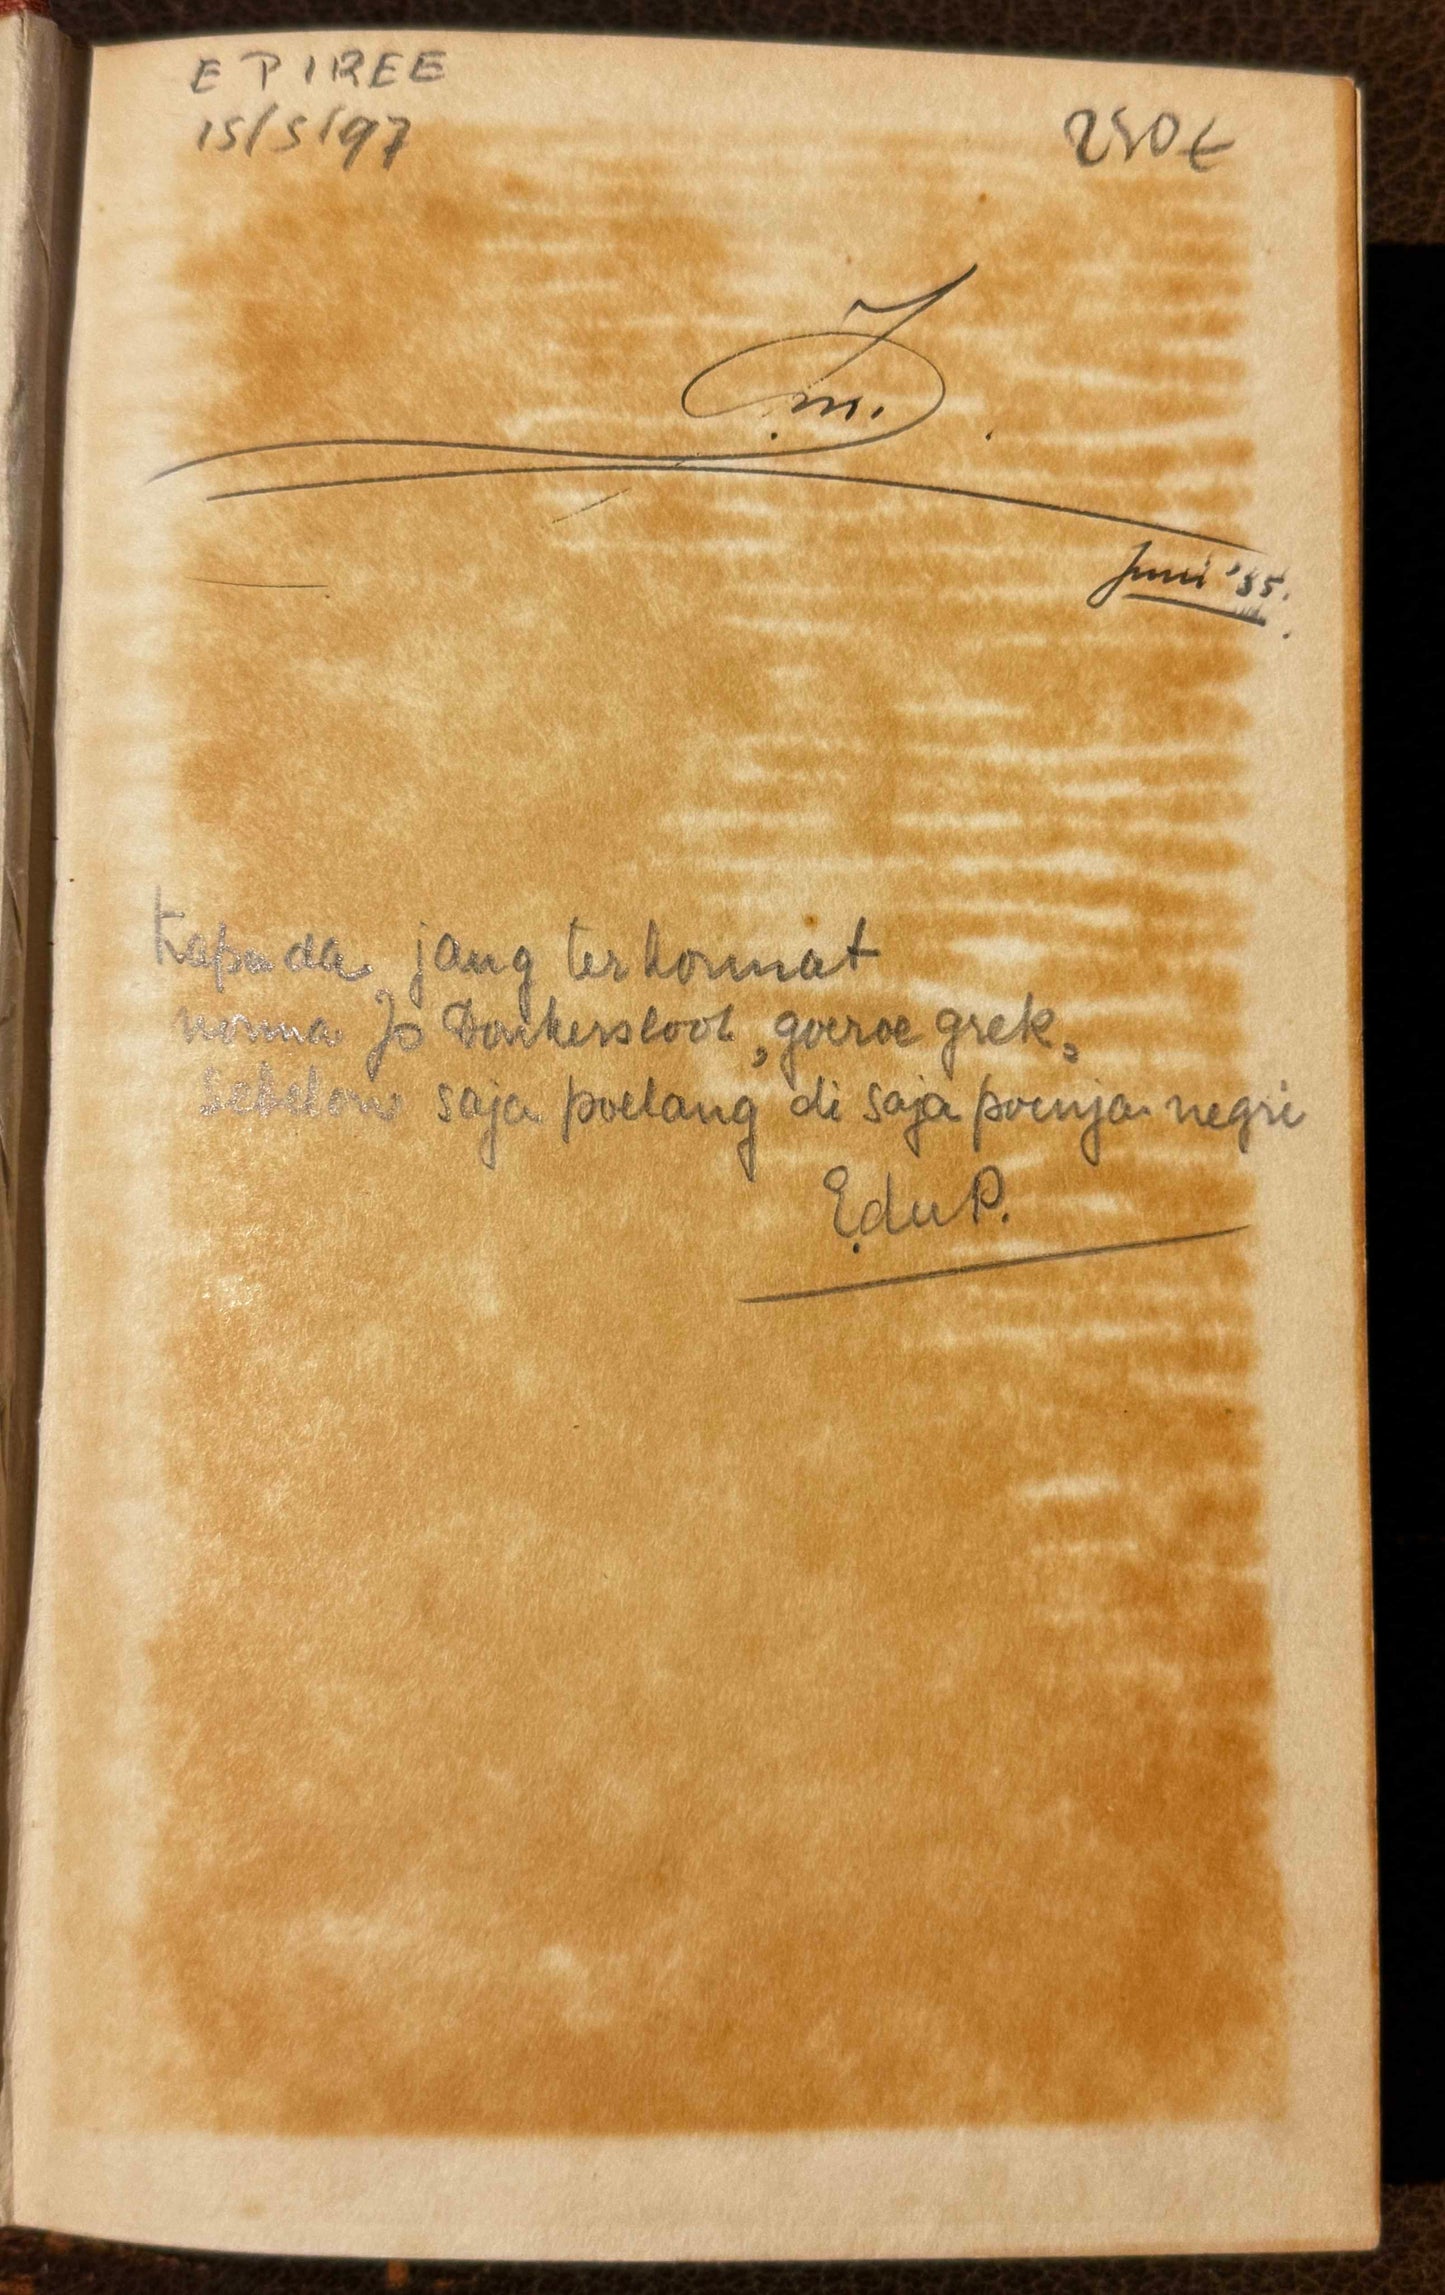 EPIREE
15/5/97
250€
J.m.
Juni '35.
kapada jang terhormat
nonna Jo Donkersloot, goeroe grek,
sebelow saja poelang di saja poenja negri
Edu P.